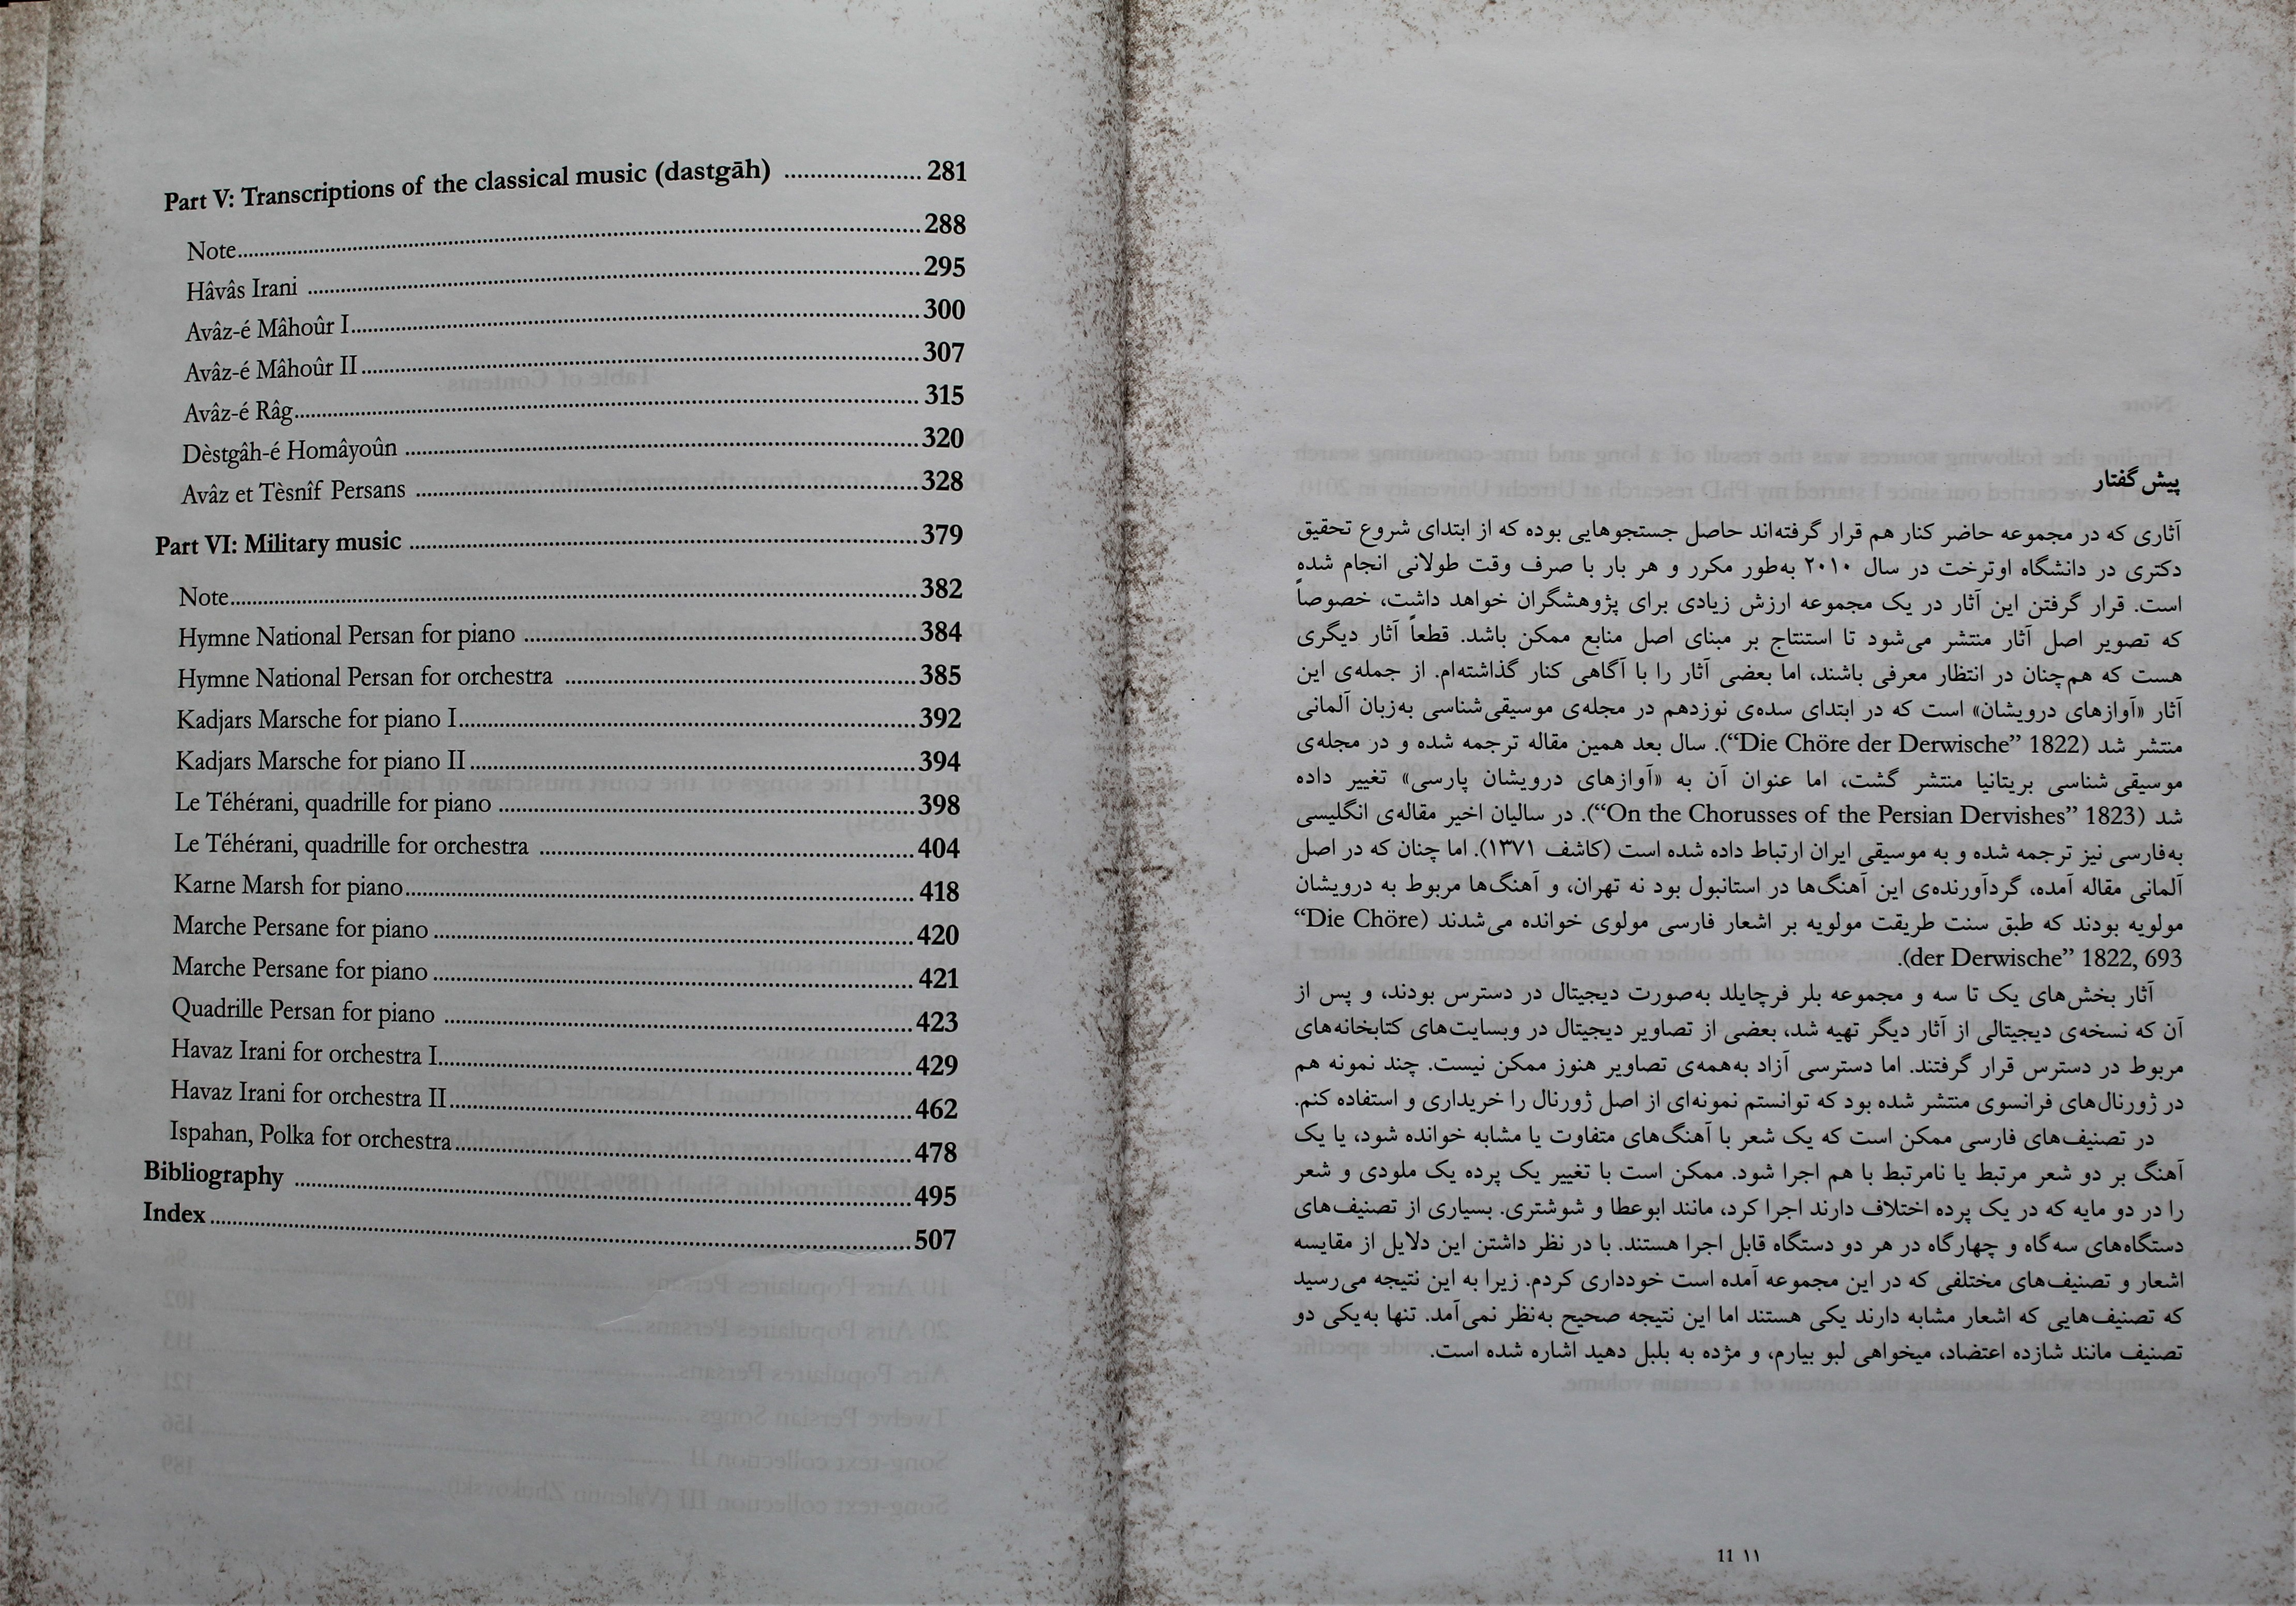 Part V: Transcriptions of the classical music (dastgāh) .................... 281
Note.................... 288
Hâvâs Irani .................... 295
Avâz-é Mâhoûr I.................... 300
Avâz-é Mâhoûr II.................... 307
Avâz-é Râg.................... 315
Dèstgâh-é Homâyoûn .................... 320
Avâz et Tèsnîf Persans .................... 328
Part VI: Military music .................... 379
Note.................... 382
Hymne National Persan for piano .................... 384
Hymne National Persan for orchestra .................... 385
Kadjars Marsche for piano I.................... 392
Kadjars Marsche for piano II.................... 394
Le Téhérani, quadrille for piano .................... 398
Le Téhérani, quadrille for orchestra .................... 404
Karne Marsh for piano.................... 418
Marche Persane for piano .................... 420
Marche Persane for piano .................... 421
Quadrille Persan for piano .................... 423
Havaz Irani for orchestra I.................... 429
Havaz Irani for orchestra II.................... 462
Ispahan, Polka for orchestra.................... 478
Bibliography .................... 495
Index.................... 507
پیش‌گفتار
آثاری که در مجموعه حاضر کنار هم قرار گرفته‌اند حاصل جستجوهایی بوده که از ابتدای شروع تحقیق
دکتری در دانشگاه اوترخت در سال ۲۰۱۰ به‌طور مکرر و هر بار با صرف وقت طولانی انجام شده
است. قرار گرفتن این آثار در یک مجموعه ارزش زیادی برای پژوهشگران خواهد داشت، خصوصاً
که تصویر اصل آثار منتشر می‌شود تا استنتاج بر مبنای اصل منابع ممکن باشد. قطعاً آثار دیگری
هست که هم‌چنان در انتظار معرفی باشند، اما بعضی آثار را با آگاهی کنار گذاشته‌ام. از جمله‌ی این
آثار «آوازهای درویشان» است که در ابتدای سده‌ی نوزدهم در مجله‌ی موسیقی‌شناسی به‌زبان آلمانی
منتشر شد (“Die Chöre der Derwische” 1822). سال بعد همین مقاله ترجمه شده و در مجله‌ی
موسیقی‌شناسی بریتانیا منتشر گشت، اما عنوان آن به «آوازهای درویشان پارسی» تغییر داده
شد (“On the Chorusses of the Persian Dervishes” 1823). در سالیان اخیر مقاله‌ی انگلیسی
به‌فارسی نیز ترجمه شده و به موسیقی ایران ارتباط داده شده است (کاشف ۱۳۷۱). اما چنان که در اصل
آلمانی مقاله آمده، گردآورنده‌ی این آهنگ‌ها در استانبول بود نه تهران، و آهنگ‌ها مربوط به درویشان
مولویه بودند که طبق سنت طریقت مولویه بر اشعار فارسی مولوی خوانده می‌شدند (“Die Chöre
der Derwische” 1822, 693).
آثار بخش‌های یک تا سه و مجموعه بلر فرچایلد به‌صورت دیجیتال در دسترس بودند، و پس از
آن که نسخه‌ی دیجیتالی از آثار دیگر تهیه شد، بعضی از تصاویر دیجیتال در وبسایت‌های کتابخانه‌های
مربوط در دسترس قرار گرفتند. اما دسترسی آزاد به‌همه‌ی تصاویر هنوز ممکن نیست. چند نمونه هم
در ژورنال‌های فرانسوی منتشر شده بود که توانستم نمونه‌ای از اصل ژورنال را خریداری و استفاده کنم.
در تصنیف‌های فارسی ممکن است که یک شعر با آهنگ‌های متفاوت یا مشابه خوانده شود، یا یک
آهنگ بر دو شعر مرتبط یا نامرتبط با هم اجرا شود. ممکن است با تغییر یک پرده یک ملودی و شعر
را در دو مایه که در یک پرده اختلاف دارند اجرا کرد، مانند ابوعطا و شوشتری. بسیاری از تصنیف‌های
دستگاه‌های سه‌گاه و چهارگاه در هر دو دستگاه قابل اجرا هستند. با در نظر داشتن این دلایل از مقایسه
اشعار و تصنیف‌های مختلفی که در این مجموعه آمده است خودداری کردم. زیرا به این نتیجه می‌رسید
که تصنیف‌هایی که اشعار مشابه دارند یکی هستند اما این نتیجه صحیح به‌نظر نمی‌آمد. تنها به‌یکی دو
تصنیف مانند شازده اعتضاد، میخواهی لبو بیارم، و مژده به بلبل دهید اشاره شده است.
11 ۱۱